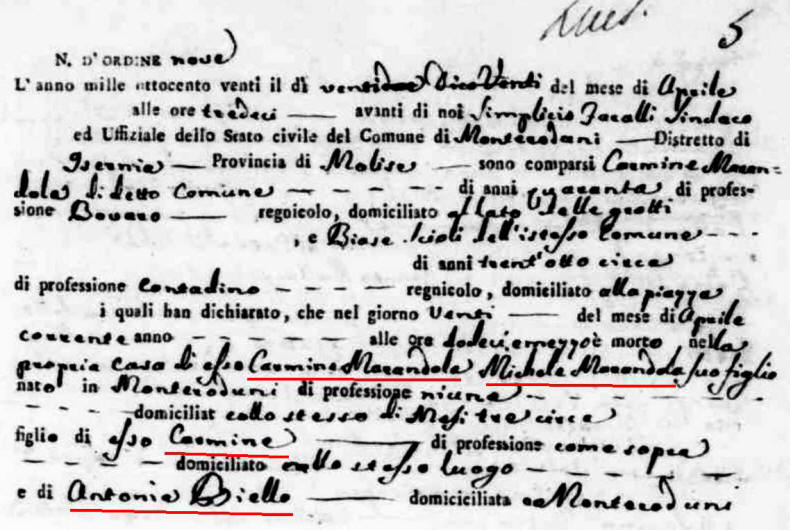 5
N. D'ORDINE nove
L'anno mille ottocento venti il dì ventidue Dico Venti del mese di Aprile
alle ore tredeci avanti di noi Simplicio Jacalli Sindaco
ed Uffiziale dello Stato civile del Comune di Monteroduni Distretto di
Isernia Provincia di Molise sono comparsi Carmine Maran=
dola di detto Comune di anni quaranta di profes-
sione Bovaro regnicolo, domiciliato al lato delle grotti
, e Biase Scioli dell'istesso Comune
di anni trent'otto circa
di professione contadino regnicolo, domiciliato alla piazza
i quali han dichiarato, che nel giorno Venti del mese di Aprile
corrente anno alle ore dodeci, emezzo è morto nella
propria casa di esso Carmine Marandola Michele Marandola suo figlio
nato in Monteroduni di professione niuna
domiciliat collo stesso di Mesi tre circa
figlio di esso Carmine di professione come sopra
domiciliato nello stesso luogo
e di Antonia Biello domiciliata a Monteroduni